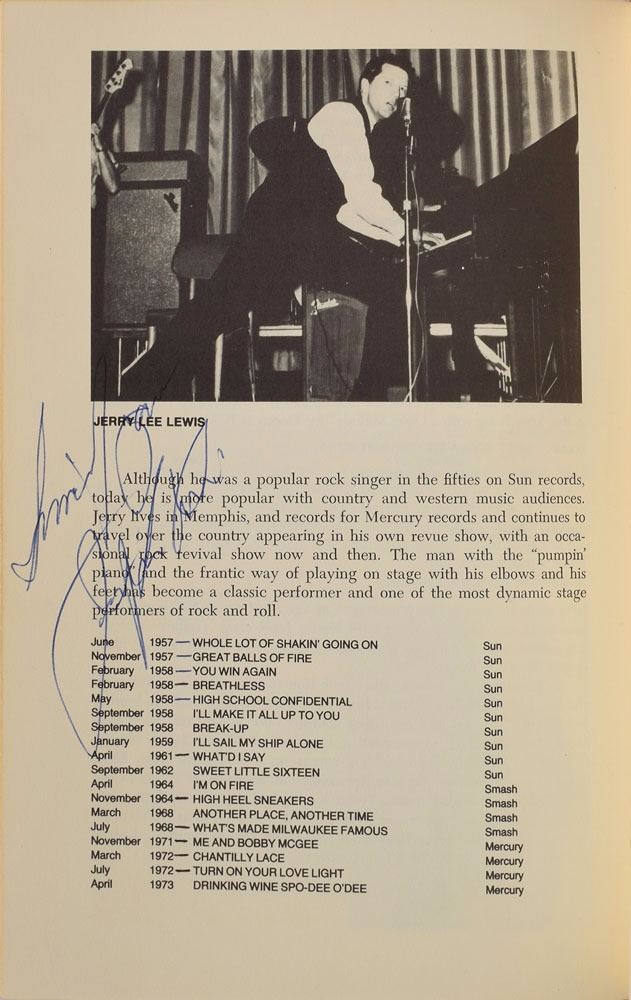 JERRY LEE LEWIS
Although he was a popular rock singer in the fifties on Sun records,
today he is more popular with country and western music audiences.
Jerry lives in Memphis, and records for Mercury records and continues to
travel over the country appearing in his own revue show, with an occa-
sional rock revival show now and then. The man with the "pumpin'
piano" and the frantic way of playing on stage with his elbows and his
feet has become a classic performer and one of the most dynamic stage
performers of rock and roll.
June 1957 — WHOLE LOT OF SHAKIN' GOING ON Sun
November 1957 — GREAT BALLS OF FIRE Sun
February 1958 — YOU WIN AGAIN Sun
February 1958 — BREATHLESS Sun
May 1958 — HIGH SCHOOL CONFIDENTIAL Sun
September 1958 I'LL MAKE IT ALL UP TO YOU Sun
September 1958 BREAK-UP Sun
January 1959 I'LL SAIL MY SHIP ALONE Sun
April 1961 — WHAT'D I SAY Sun
September 1962 SWEET LITTLE SIXTEEN Sun
April 1964 I'M ON FIRE Smash
November 1964 — HIGH HEEL SNEAKERS Smash
March 1968 ANOTHER PLACE, ANOTHER TIME Smash
July 1968 — WHAT'S MADE MILWAUKEE FAMOUS Smash
November 1971 — ME AND BOBBY MCGEE Mercury
March 1972 — CHANTILLY LACE Mercury
July 1972 — TURN ON YOUR LOVE LIGHT Mercury
April 1973 DRINKING WINE SPO-DEE O'DEE Mercury